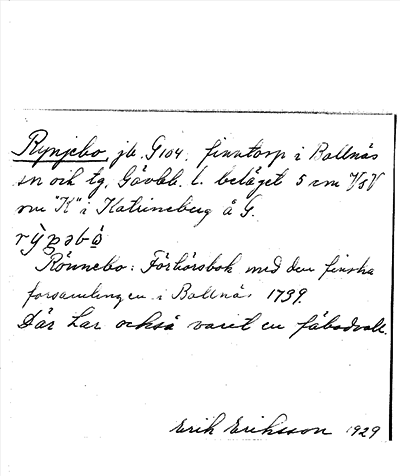 Rynjebo, jb. G104, finntorp i Bollnäs
sn och tg, Gävleb. l. beläget 5 cm VSV
om "K" i Katrineberg å G.
rỳŋəbō
Rönnebo: Förhörsbok med den finska
församlingen i Bollnäs 1739.
Där har också varit en fäbodvall.
Erik Eriksson 1929